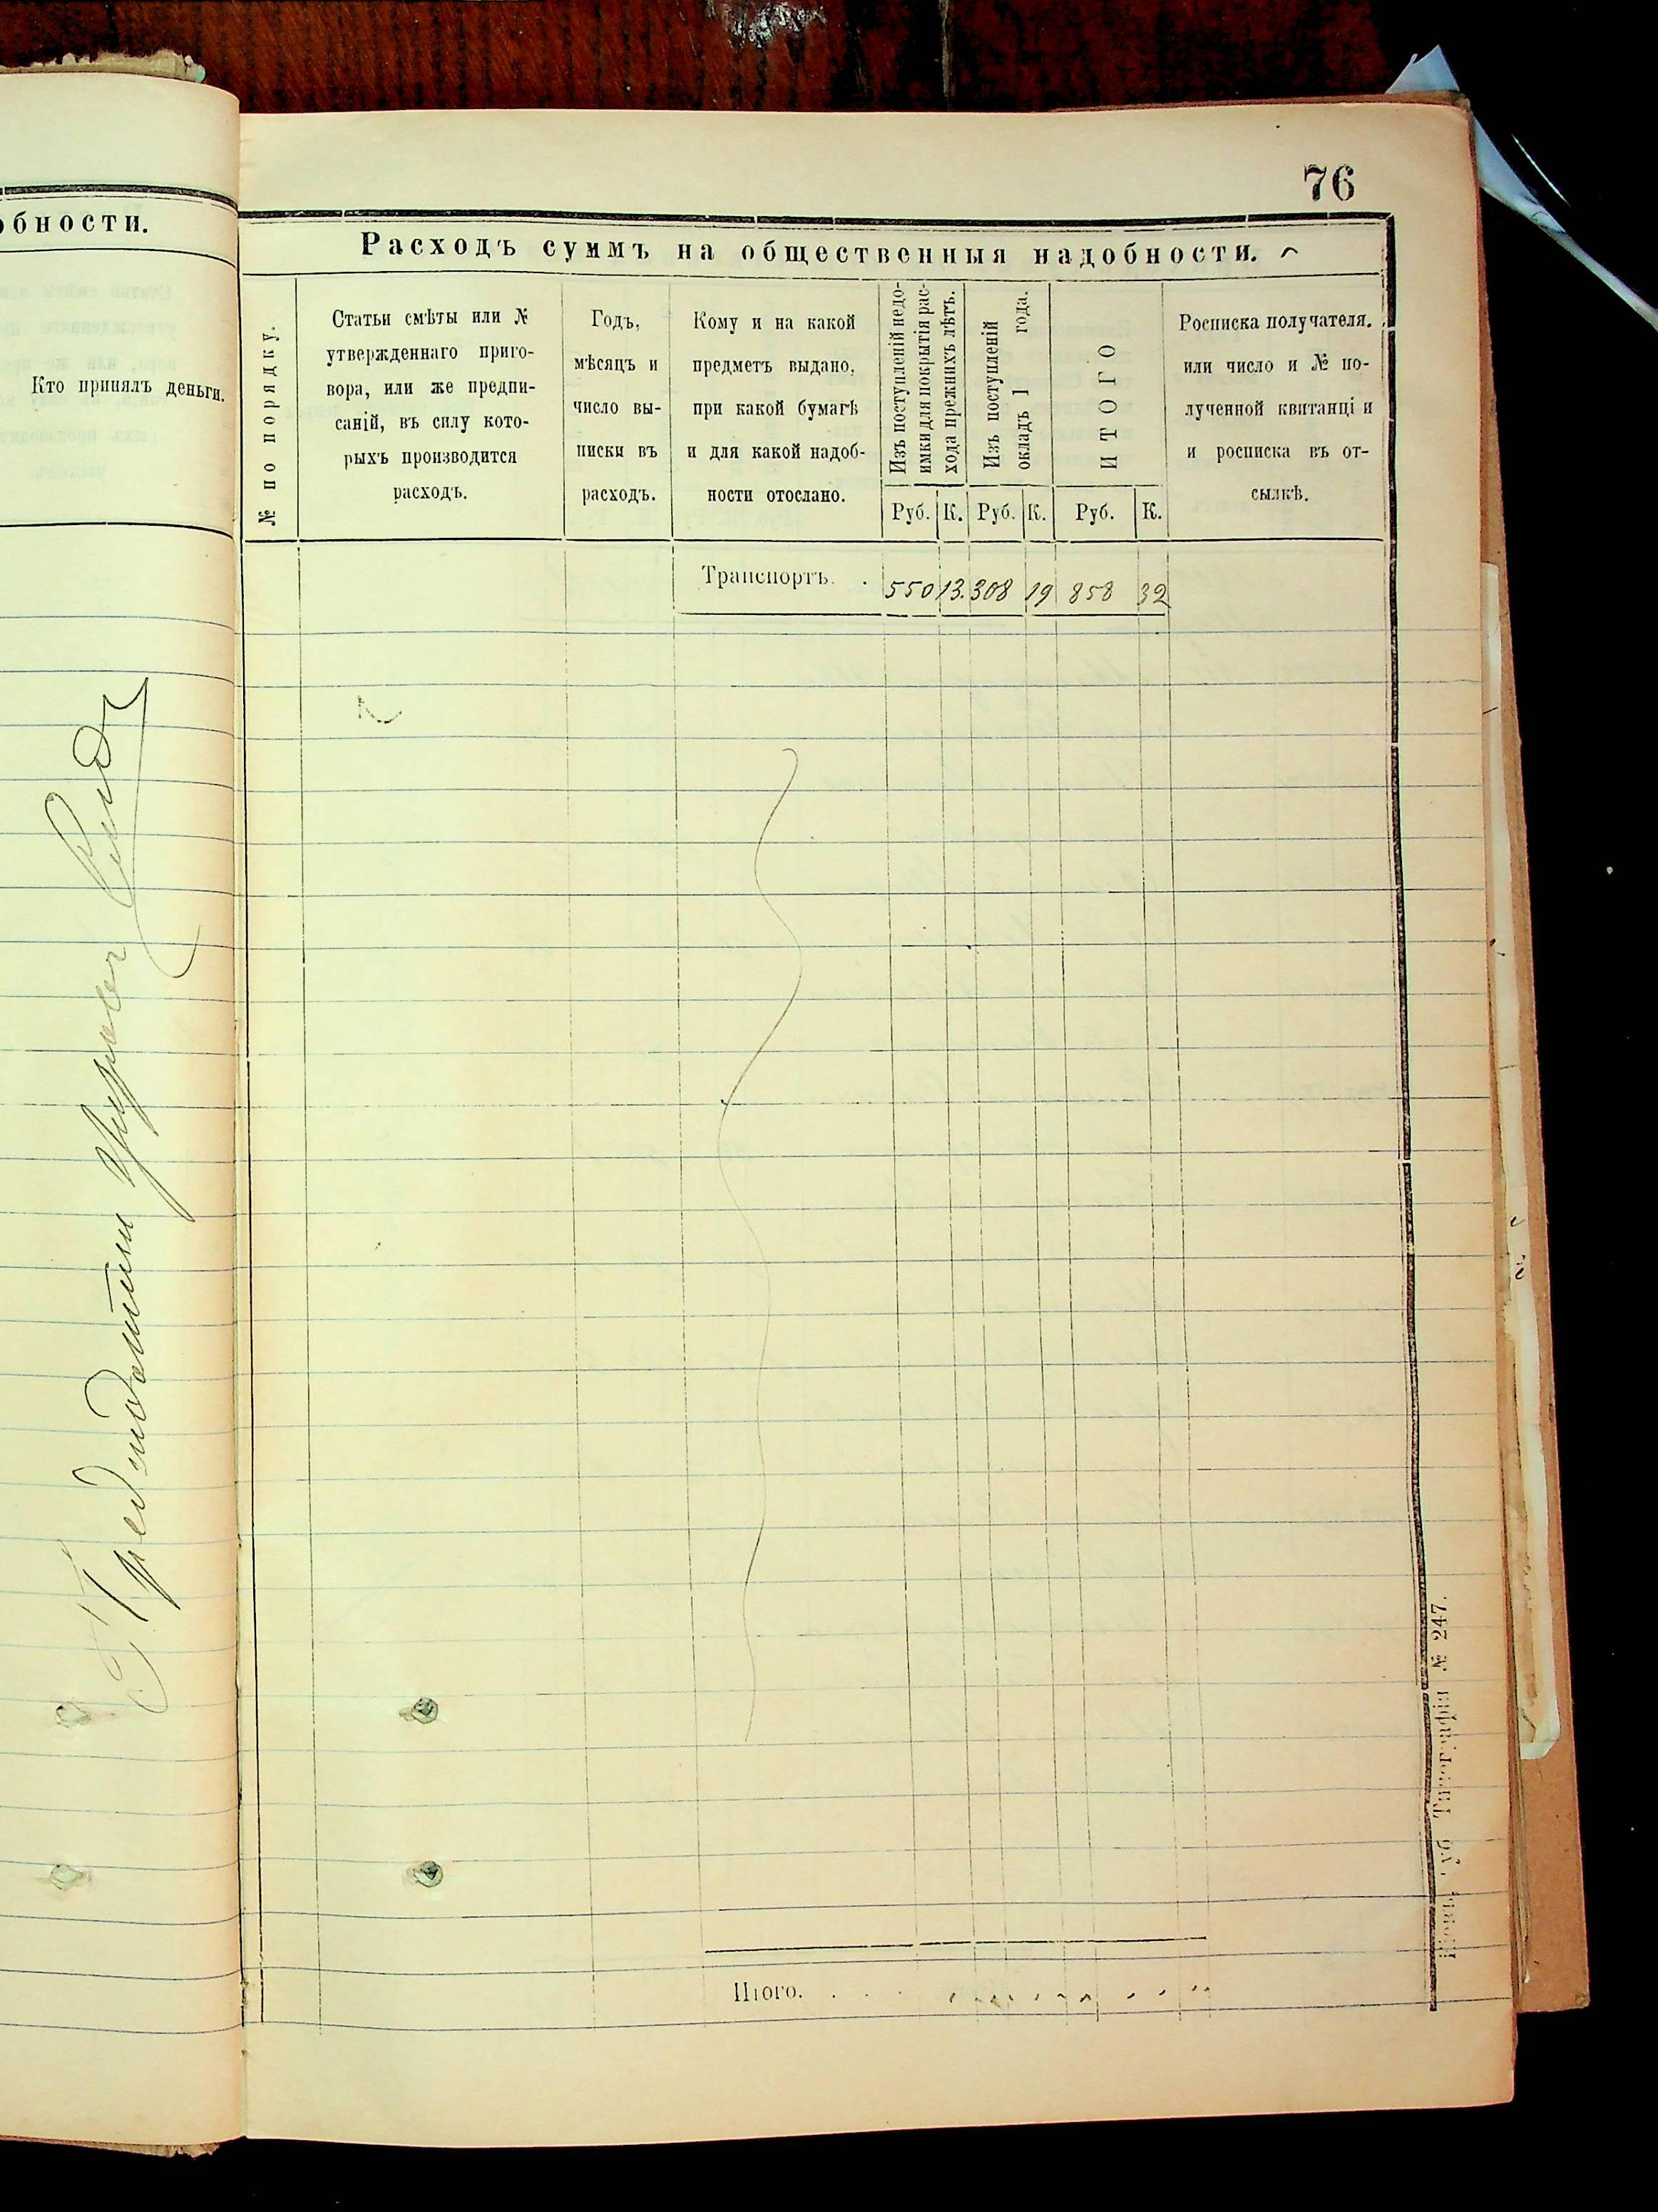 обности.
Кто принялъ деньги.
76
Расходъ суммъ на общественныя надобности.
№ по порядку.
Статьи смѣты или №
утвержденнаго приго-
вора, или же предпи-
саній, въ силу кото-
рыхъ производится
расходъ.
Годъ,
мѣсяцъ и
число вы-
писки въ
расходъ.
Кому и на какой
предметъ выдано,
при какой бумагѣ
и для какой надоб-
ности отослано.
Изъ поступленій недо-
имки для покрытія рас-
хода прежнихъ лѣтъ.
Изъ поступленій
окладъ 1 года.
ИТОГО
Росписка получателя.
или число и № по-
лученной квитанціи
и росписка въ от-
сылкѣ.
Руб. К. Руб. К. Руб. К.
Транспортъ. . 550 13. 308 19 858 32
Итого. . . .
Типографія № 247.